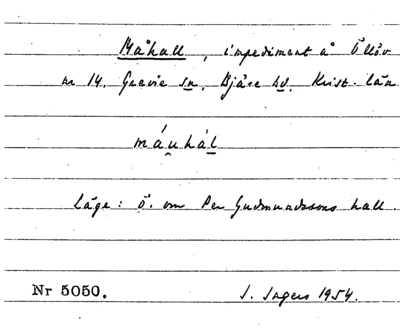 Måhall, impediment å Öllöv
nr 14. Grevie sn, Bjäre hd. Krist. län
máu̯hál
Läge: ö. om Per Gudmundssons hall.
Nr 5050. I. Ingers 1954.